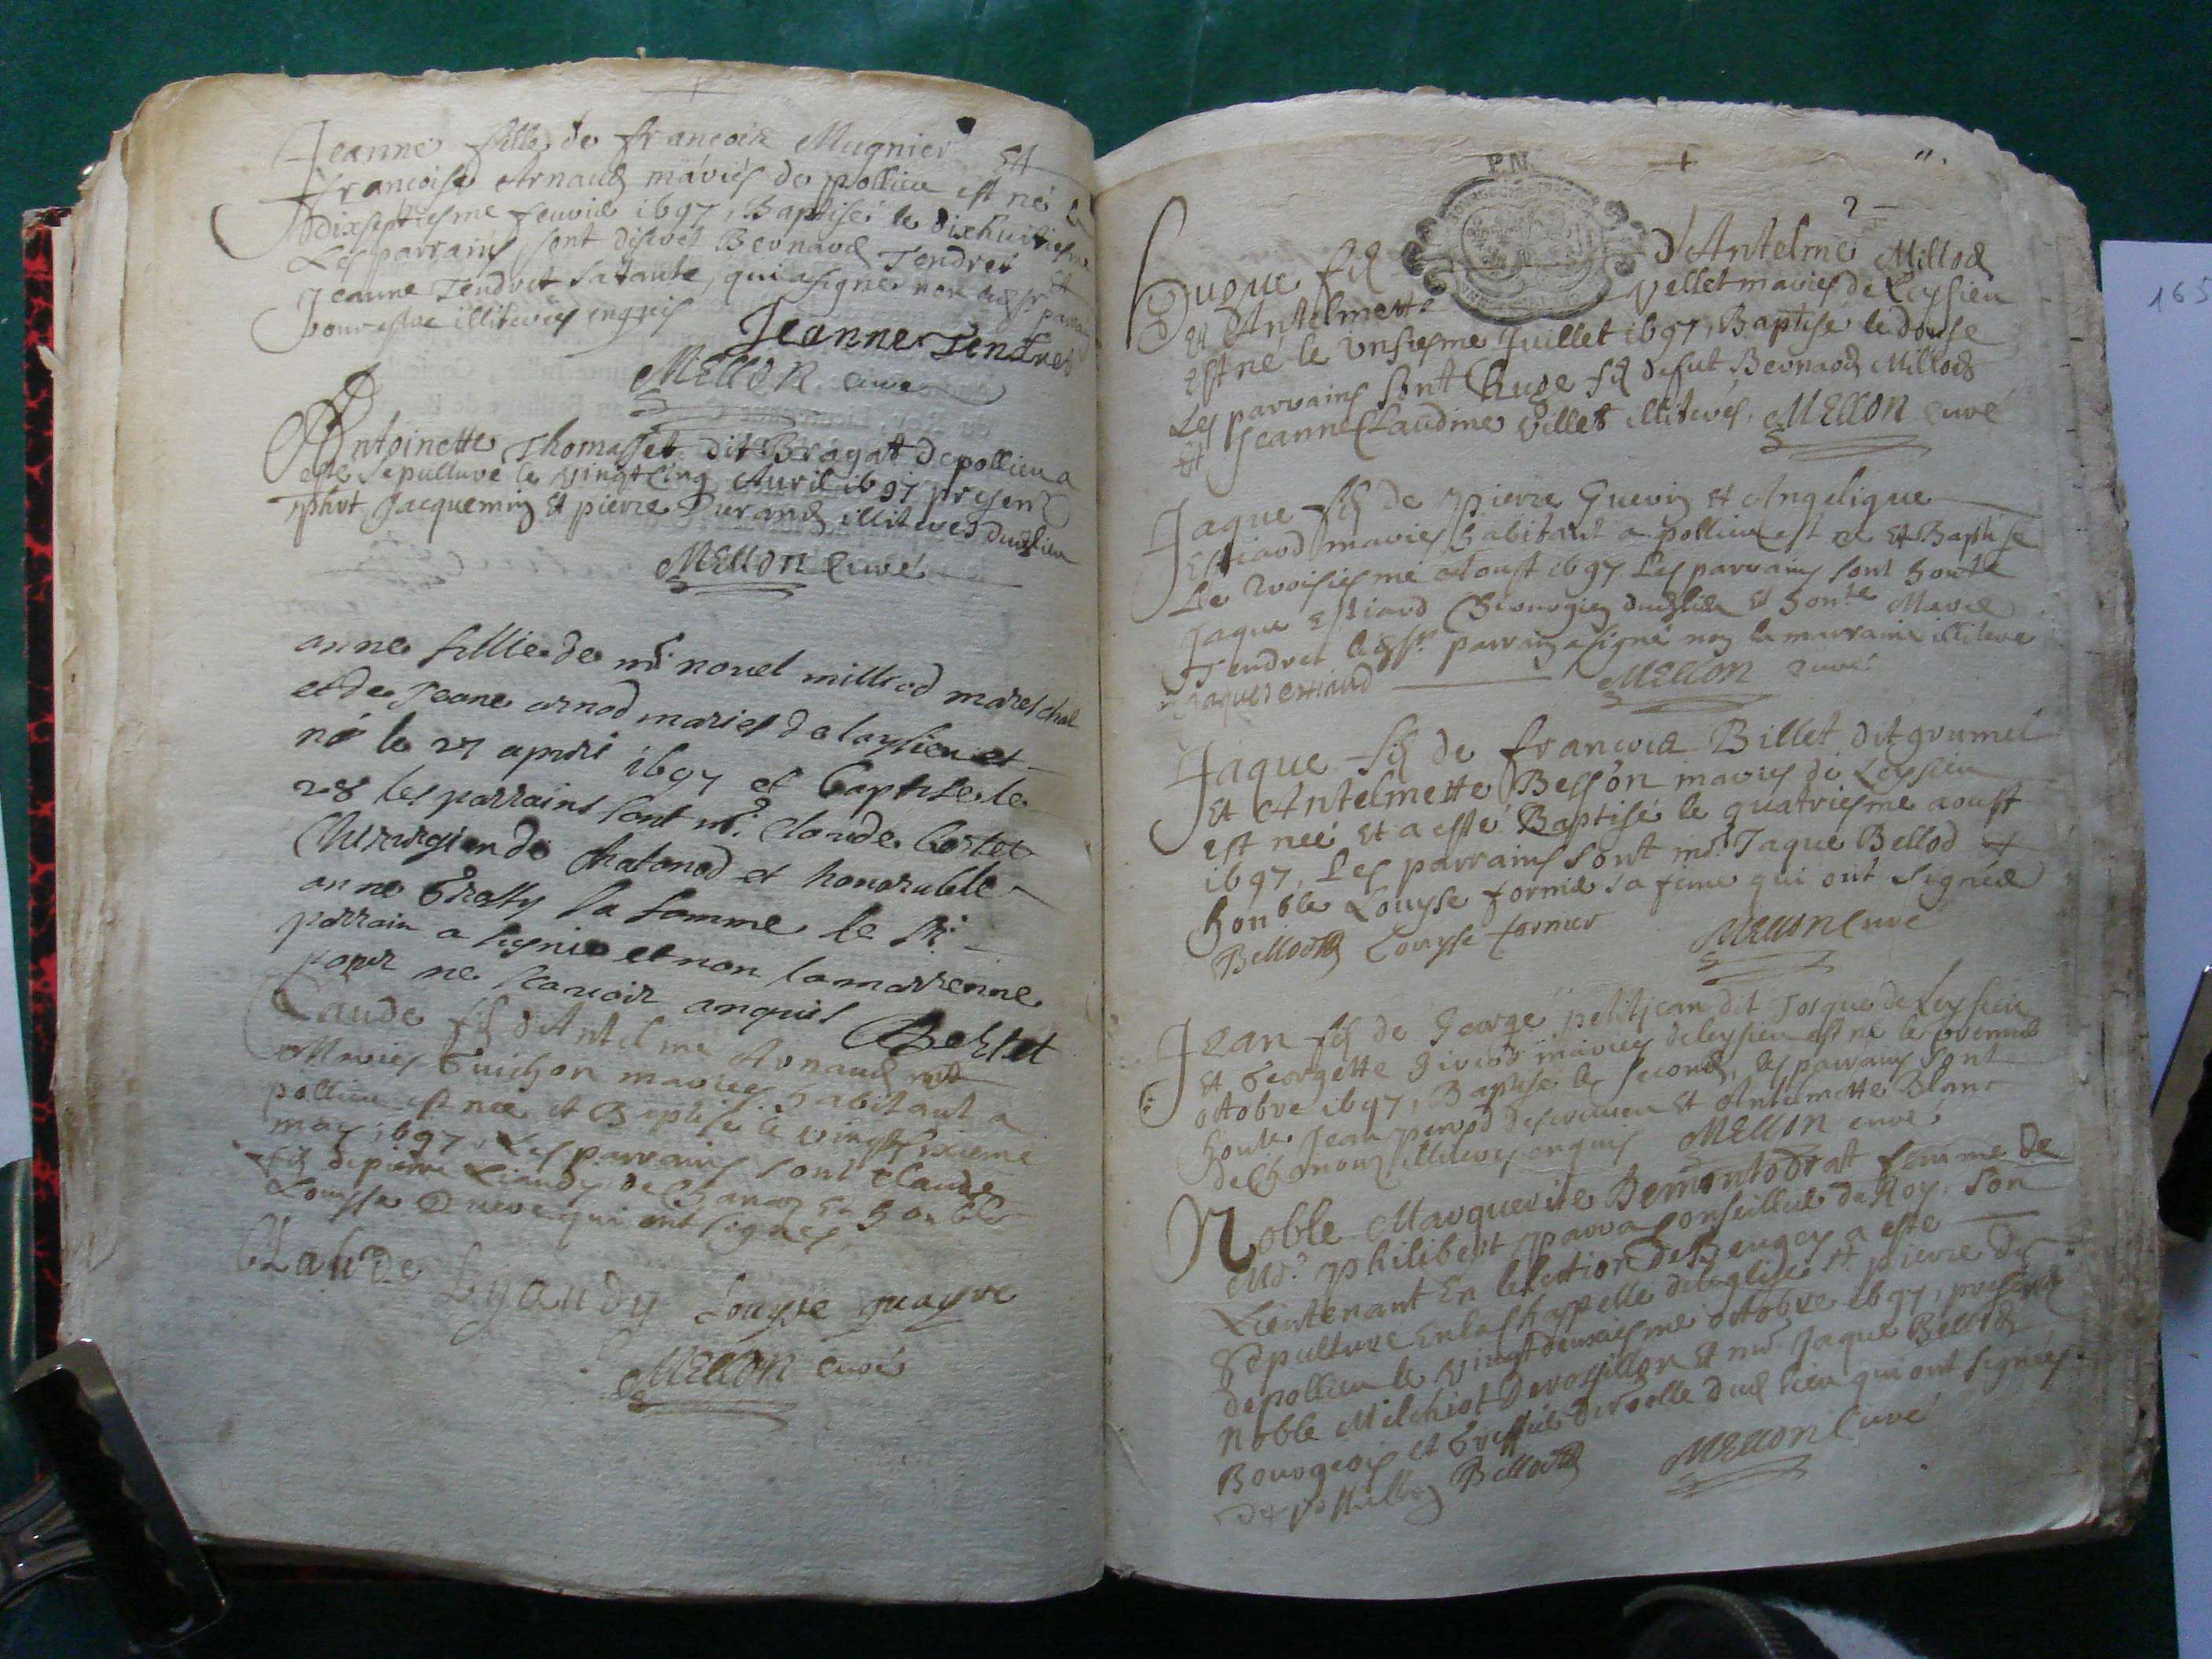 Jeanne fille de francois Mugnier Et
francoise Arnaud mariés de pollieu est né le
dixseptiesme feuvier 1697, Baptisé le dixhuitiesme
Les parrains sont discret Bernard Tendret Et
Jeanne Tendret sa tante, qui a signé non led sr parrain
pour estre illiteré enquis
Jeanne Tendret
MELLON curé
Antoinette Thomasset dit Bragat de pollieu a
esté sepulturé le vingt cinq Auril 1697 presentz
phrt Jacquemin Et pierre Durand illiterés dud lieu
MELLON Curé
anne fillie de mr nouel milliod mareschal
et de Jeane arnod mariés de laysieu et
né le 27 apvril 1697 et baptise le
28 les parrains sont mr. Claude bertet
Chirurgien de et honorable
anne la famme le sr
parrain a signie et non la marrenne
pour ne scauoir anquis
Bertet
Claude fils d'Antelme Arnaud Et
Guichon mariés habitant a
pollieu est né et Baptisé le vingtsixieme
may 1697, Les parrains sont Claude
fils de pierre Liandy de Chanaz Et honble
Louysse qui ont signés
CLaude Lyandy Louyse guayre
MELLON curé
P.N.
Hugue fils d'Antelme Milliod
Et Antelmette Vellet mariés de Leysieu
Est né le Unsiesme Juillet 1697, Baptisé le douse
Les parrains sont Huge fils de fut Bernard Milliod
Et Jeanne Claudine Villet illiterés. MELLON curé
Jaque fils de pierre Guerin et Angelique
Estiard mariés habitant a pollieu est né Et Baptisé
Le troisiesme Aoust 1697 Les parrains sont honte
Jaque Estiard Chirurgien dudlieu Et honte Marie
Tendret led sr. parrain a signé non la marraine illiteré
Jaques estiard MELLON curé
Jaque fils de francois Billet dit grumel
Et Antelmette Besson mariés de Leysieu
est neé Et a esté Baptisé le quatriesme aoust
1697, Les parrains sont mr. Jaque Bellod Et
honble Louyse fornier sa feme qui ont signéé
Bellod Louyse fornier MELLON Curé
Jean fils de George petitjean dit de Leysieu
Et Georgette mariés de leysieu est né le premier
octobre 1697, Baptisé le second, les parrains sont
honte Jean perrod Et Antelmette Blanc
de Chanouz illiterés enquis MELLON curé
Noble Marguerite Demontdorat femme De
Mr. philibert parra Conseillier du Roy, son
Lieutenant En lélection de Beugey a esté
Sepulture En la Chappelle de leglise St pierre de
de pollieu le Vingt deuxiesme octobre 1697, presentz
noble Melchiot Derossillon Et mr Jaque Bellod
Bourgeois et Greffier dud lieu qui ont signéés.
de rossillon Bellod MELLON Curé